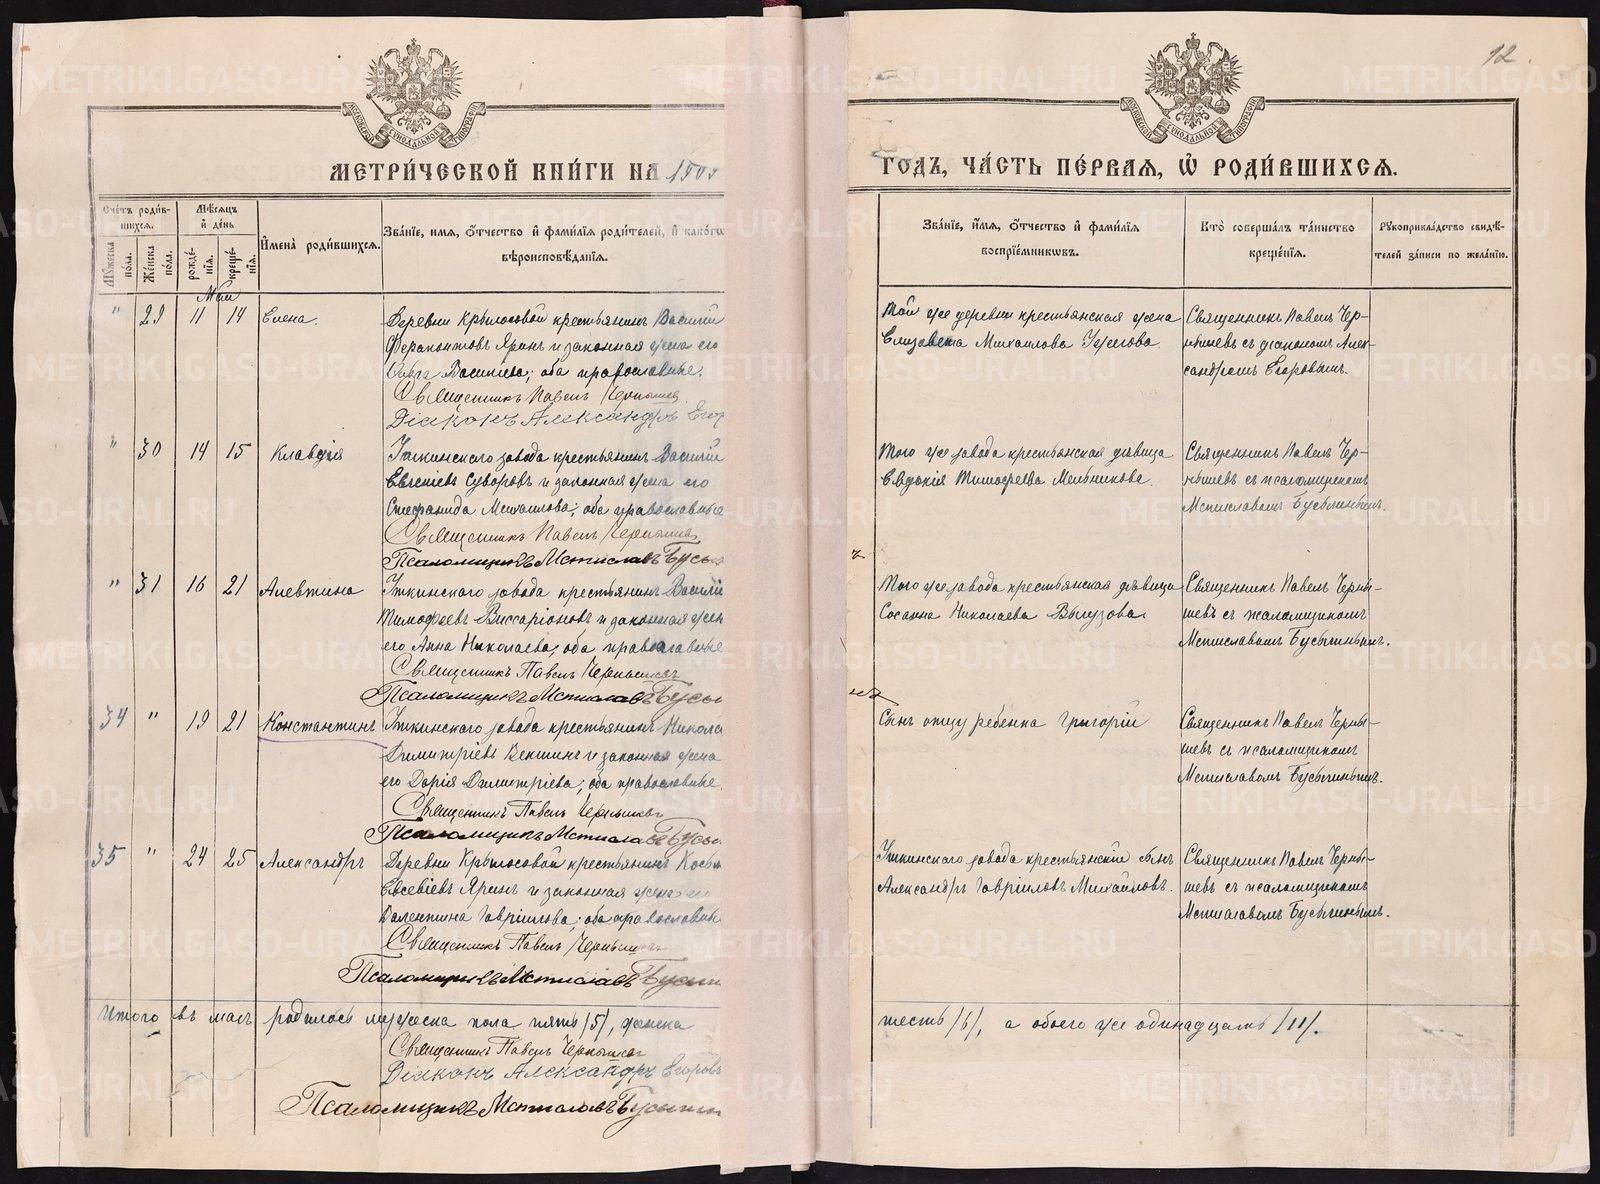 12.
МОСКОВСКОЙ СѴНОДАЛЬНОЙ ТИПОГРАФІИ
МОСКОВСКОЙ СѴНОДАЛЬНОЙ ТИПОГРАФІИ
МЕТРИ́ЧЕСКОЙ КНИ́ГИ НА
ГОДЪ, ЧА́СТЬ ПЕ́РВАЯ, Ѡ҆ РОДИ́ВШИХСЯ.
Сче́тъ роди́в-
шихся.
Му́жеска по́ла.
Же́нска по́ла.
Мѣ́сяцъ
и҆ де́нь
рожде́-
нія.
креще́-
нія.
И҆мена̀ роди́вшихся.
Зва́ніе, и҆мя, ѻ҆́тчество и҆ фами́лія роди́телей, и҆ како́гѡ
вѣроисповѣ́данія.
Зва́ніе, и҆́мя, ѻ҆́тчество и҆ фами́лія
воспріе́мникѡвъ.
Кто̀ соверша́лъ та́инство
креще́нія.
Рꙋкоприкла́дство свидѣ́-
телей за́писи по жела́нію.
Май
" 29 11 14 Елена.
Деревни Крылосовой крестьянинъ Василій
Ферапонтовъ Яринъ и законная жена его
Васильева; оба православные.
Священникъ Павелъ Чернышев
Діаконъ Александръ Егор
Той же деревни крестьянская жена
Елизавета Михаилова
Священникъ Павелъ Чер-
нышевъ съ діакономъ Алек-
сандромъ Егоровымъ.
" 30 14 15 Клавдія
Уткинскаго завода крестьянинъ Василій
Евгеніевъ Суворовъ и законная жена его
Стефанида Михаилова; оба православные
Священникъ Павелъ Чернышев
Псаломщикъ Мстиславъ Бусы
Того же завода крестьянская дѣвица
Евдокія Тимофеева Мельникова.
Священникъ Павелъ Чер-
нышевъ съ псаломщикомъ
Мстиславомъ Бусыгинымъ.
" 31 16 21 Алевтина
Уткинскаго завода крестьянинъ Василій
Тимофеевъ Виссаріоновъ и законная жен
его Анна Николаева; оба православные
Священникъ Павелъ Чернышев
Псаломщикъ Мстиславъ Бусы
Того же завода крестьянская дѣвица
Сосанна Николаева
Священникъ Павелъ Черны-
шевъ съ псаломщикомъ
Мстиславомъ Бусыгинымъ.
34 " 19 21 Константинъ
Уткинскаго завода крестьянинъ Никола
Димитріевъ Векшинъ и законная жена
его Дарія Димитріева; оба православные.
Священникъ Павелъ Чернышевъ
Псаломщикъ Мстиславъ Бусы
Сынъ отцу ребенка Григорій
Священникъ Павелъ Черны-
шевъ съ псаломщикомъ
Мстиславомъ Бусыгинымъ.
35 " 24 25 Александръ
Деревни Крылосовой крестьянинъ Косьм
Евсевіевъ Яринъ и законная жена его
Валентина Гавріилова; оба православны
Священникъ Павелъ Чернышевъ
Псаломщикъ Мстиславъ Бусыги
Уткинскаго завода крестьянскій сынъ
Александръ Гавріиловъ Михайловъ.
Священникъ Павелъ Черны-
шевъ съ псаломщикомъ
Мстиславомъ Бусыгинымъ.
Итого въ маѣ родилось мужеска пола пять /5/, женска
шесть /6/, а обоего же одинадцать /11/.
Священникъ Павелъ Чернышев
Діаконъ Александръ Егоровъ
Псаломщикъ Мстиславъ Бусыгин
METRIKI.GASO-URAL.RU